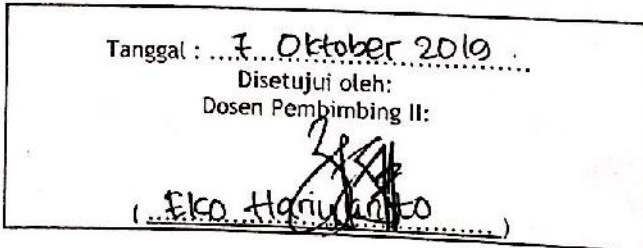 Tanggal : 7 Oktober 2019
Disetujui oleh:
Dosen Pembimbing II:
( Eko Hariyanto )